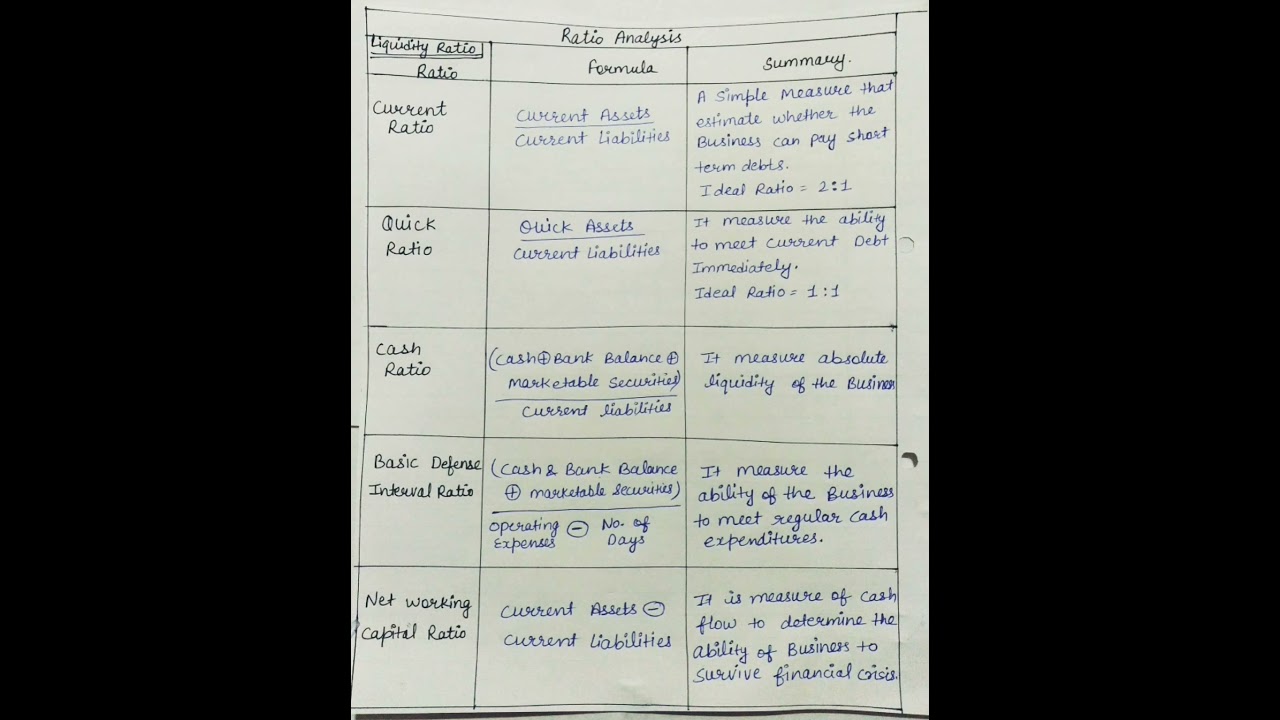 Ratio Analysis
Liquidity Ratio
Ratio
Formula
Summary.
Current
Ratio
Current Assets
Current Liabilities
A Simple Measure that
estimate whether the
Business can pay short
term debts.
Ideal Ratio = 2:1
Quick
Ratio
Quick Assets
Current Liabilities
It measure the ability
to meet Current Debt
Immediately.
Ideal Ratio = 1:1
Cash
Ratio
(Cash ⊕ Bank Balance ⊕
Marketable Securities)
Current liabilities
It measure absolute
liquidity of the Busines
Basic Defense
Interval Ratio
(Cash & Bank Balance
⊕ marketable Securities)
Operating ⊖ No. of
Expenses Days
It measure the
ability of the Business
to meet regular cash
expenditures.
Net working
Capital Ratio
Current Assets ⊖
Current Liabilities
It is measure of cash
flow to determine the
ability of Business to
Survive financial crisis.